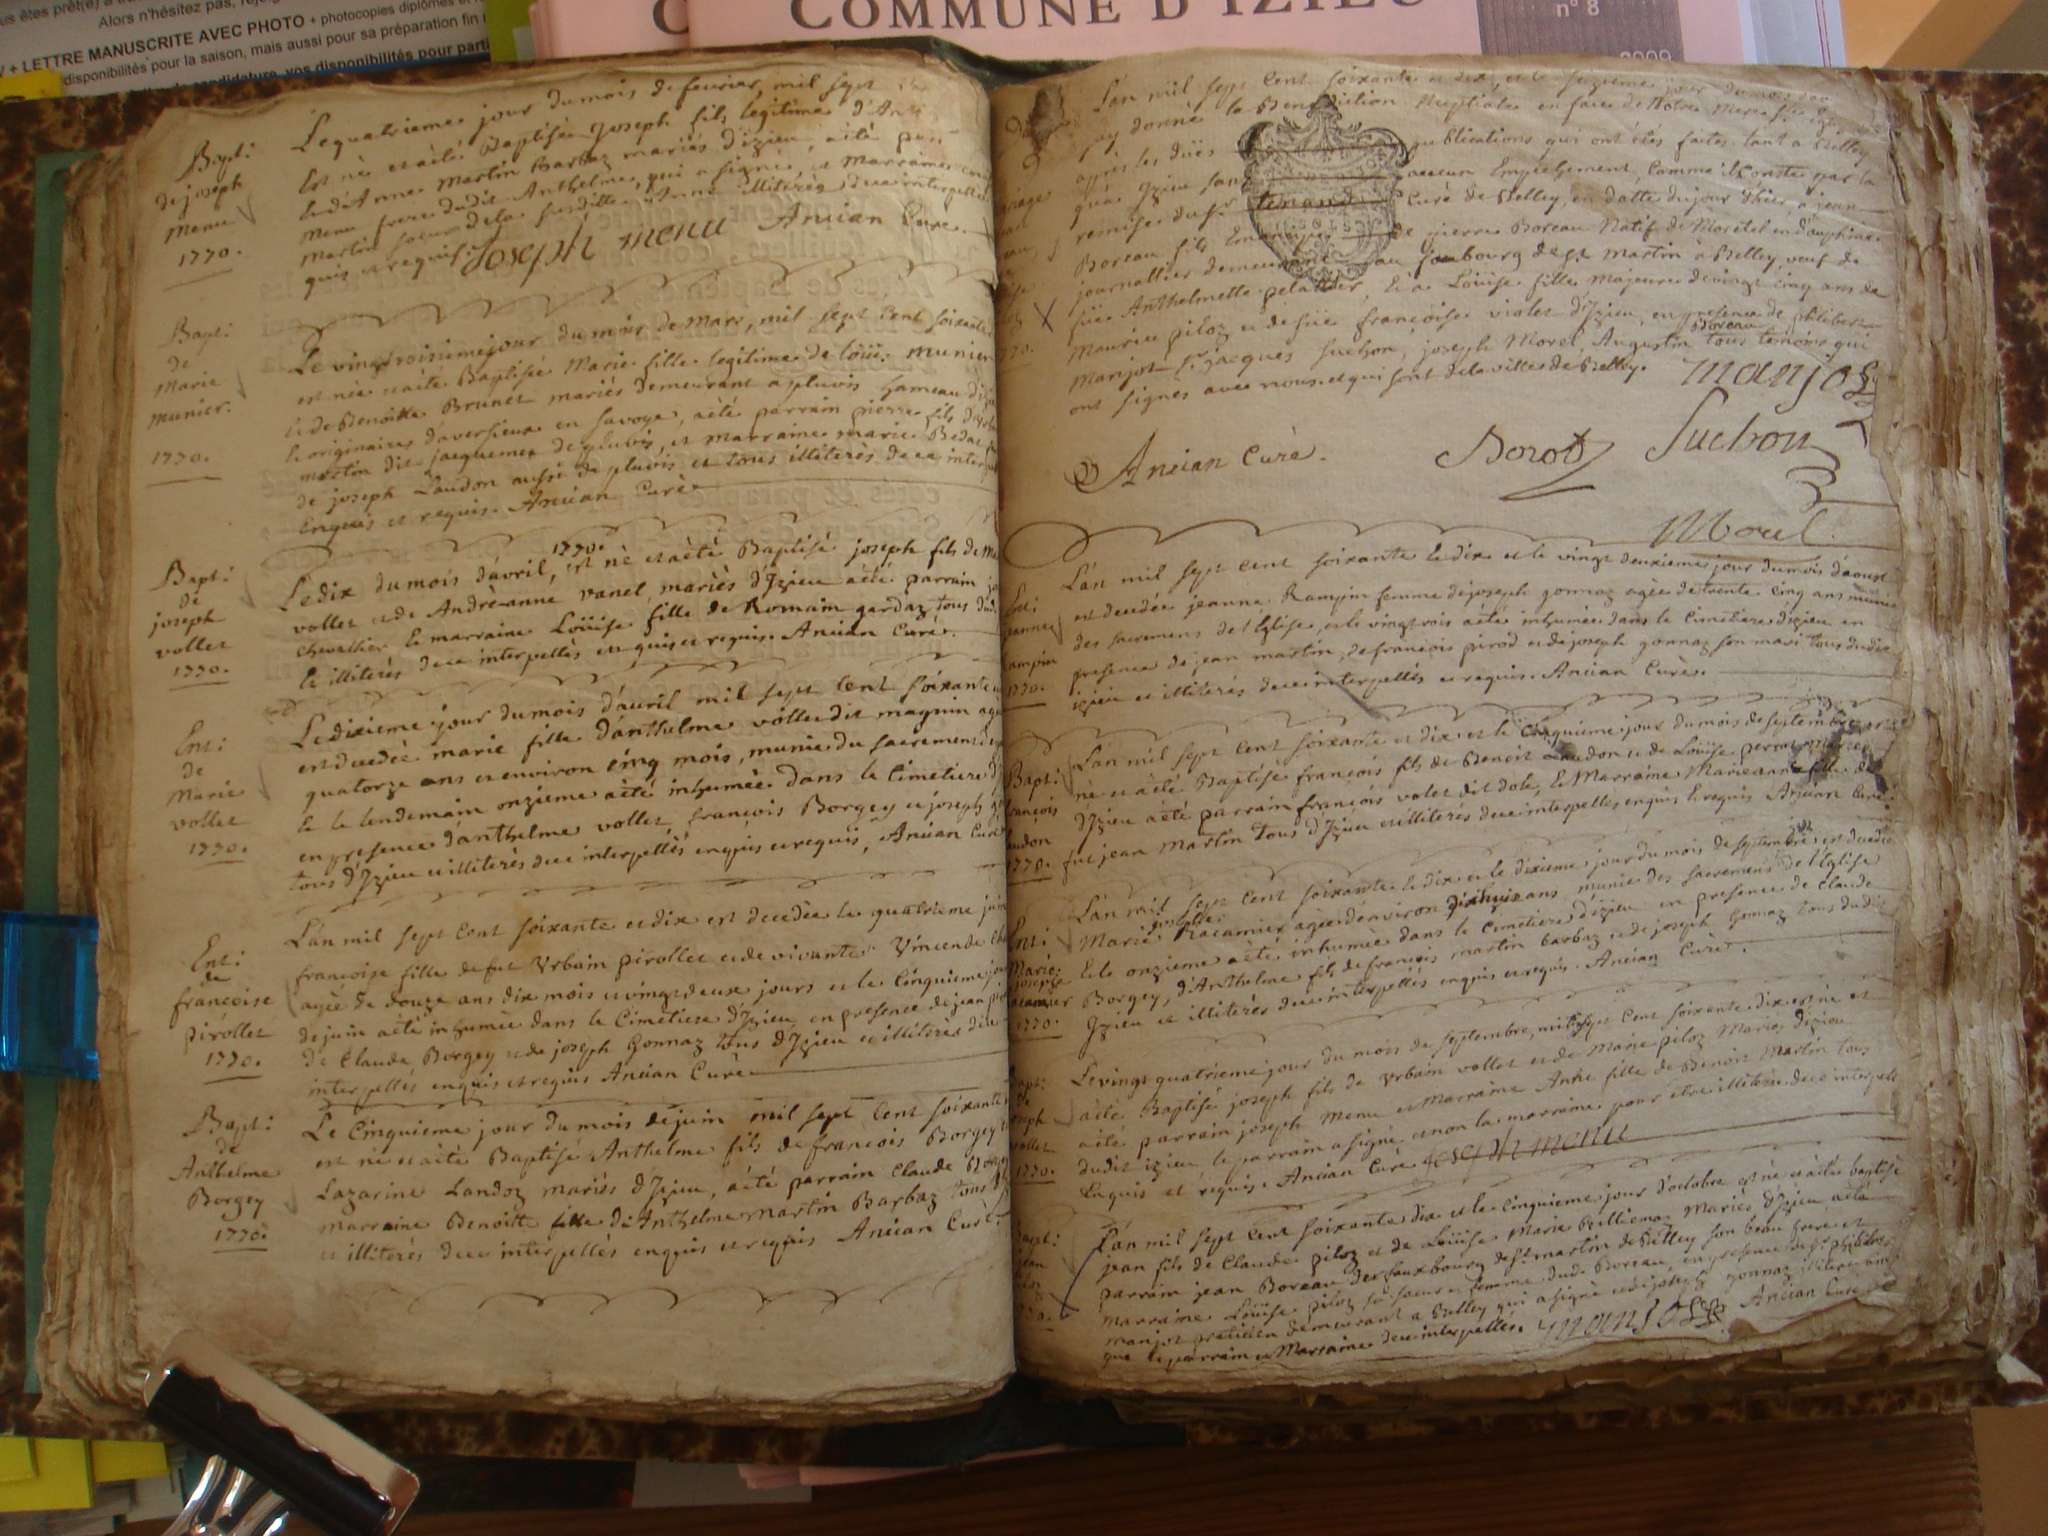 Alors n'hésitez pas,
+ LETTRE MANUSCRITE AVEC PHOTO + photocopies diplômes et
disponibilités pour la saison, mais aussi pour sa préparation fin
vos disponibilités pour parti
COMMUNE D'IZIEU
n° 8
2009
Bapt:
de joseph
Menu
1770.
Le quatrieme jour du mois de fevrier, mil sept
Est né et a été Baptisé Joseph fils legitime d'Ant
et d'Anne Martin Barbaz mariés d'izieu, a été par
Menu frere dudit Anthelme, qui a signé, et Marraine
Martin soeur de la susditte Anne illiterée de ce interpellée
quis et requis. Joseph menu Ancian Curé.
Bapt:
de
Marie
Munier.
1770.
Le vingtroisieme jour du mois de Mars, mil sept Cent soixante
est née et a été Baptisée Marie fille legitime de Loüis Munier
et de Benoitte Brunet mariés demeurant a pluvis hameau d'iz
et originaires d'aversieux en savoye, a été parrain pierre fils d'
martin dit jacquemet de pluvis, et marraine marie Bedat
de joseph Landon aussi de pluvis et tous illiterés de ce interp
Enquis et requis. Ancian Curé
Bapt:
de
joseph
vollet
1770.
1770.
Le dix du mois d'avril, est né et a été Baptisé joseph fils de
vollet et de André-anne vanel, mariés d'Izieu a été parrain
chevallier et marraine Loüise fille de Romain gardaz tous dud.
et illiterés de ce interpellés enquis et requis. Ancian Curé.
Ent:
de
Marie
vollet
1770.
Le dixieme jour du mois d'avril mil sept Cent soixante
est decedée marie fille d'anthelme vollet dit magnin ag
quatorze ans et environ cinq mois, munie du sacrement
et le lendemain onzieme a été inhumée dans le Cimetiere d'
en presence d'anthelme vollet, francois Borgey et joseph g
tous d'Izieu et illiterés de ce interpellés enquis et requis, Ancian Curé
Ent:
de
françoise
pirollet
1770.
L'an mil sept Cent soixante et dix est decedée le quatrieme juin
françoise fille de fut Urbain pirollet et de vivante Vincende
agée de douze ans dix mois et vingt deux jours et le Cinquieme jour
de juin a été inhumée dans le Cimetiere d'Izieu en presence de jean
de Claude Borgey et de joseph Gonnaz tous d'Izieu et illiterés de ce
interpellés enquis et requis Ancian Curé
Bapt:
de
Anthelme
Borgey
1770.
Le Cinquieme jour du mois de juin mil sept Cent soixante
est né et a été Baptisé Anthelme fils de francois Borgey
Lazarine Landoz mariés d'Izieu, a été parrain Claude Borgey
marraine Benoitte fille d'Anthelme martin Barbaz tous
et illiterés de ce interpellés enquis et requis Ancian Curé.
L'an mil sept Cent soixante et dix, et le seizieme jour du mois
jay donné la Benediction Nuptiale en face de Notre Mere Ste
après les dües publications qui ont étés faites tant a Belley
qu'a Izieu sans aucun Empechement, Comme il Conste par la
remise du Sr Curé de Belley, en datte du jour d'hier, a jean
Boreau fils de pierre Boreau Natif de Morétel en dauphiné
journallier demeurant au faubourg de St martin à Belley veuf de
füe Anthelmette et a Loüise fille Majeure de vingt cinq ans de
Maurice piloz et de füe françoise violet d'Izieu, en presence de philibert
Manjot Sr jacques Suchon, joseph Morel, Augustin Boreau tous temoins qui
ont signés avec nous et qui sont de la ville de Belley.
manjot
Ancian Curé.
Suchon
Morel
jeanne
rampin
1770.
L'an mil sept Cent soixante et dix et le vingt deuxieme jour du mois d'aoust
est decedée jeanne Rampin femme de joseph gonnaz agée de trente Cinq ans munie
des sacremens de l'Eglise, et le vingtrois a été inhumée dans le Cimetiere d'izieu en
presence de jean martin, de francois pirod et de joseph gonnaz son mari tous dudit
izieu et illiterés de ce interpellés et requis. Ancian Curé.
Bapt:
francois
Landon
1770.
L'an mil sept Cent soixante et dix et le Cinquieme jour du mois de septembre
né et a été Baptisé francois fils de Benoit Landon et de Loüise perret mariés
d'Izieu a été parrain francois volet dit dole, et Marraine Marieanne fille de
fut jean Martin tous d'Izieu et illiterés de ce interpellés enquis et requis Ancian Curé.
Ent:
Marie
josephe
Racamier
1770.
L'an mil sept Cent soixante et dix et le dixieme jour du mois de septembre est decedée
Marie josephe Racamier agée d'environ dixhuit ans munie des sacremens de l'Eglise
et le onzieme a été inhumée dans le Cimetiere d'izieu en presence de Claude
Borgey, d'Anthelme fils de francois martin barbaz et de joseph Gonnaz tous dudit
Izieu et illiterés de ce interpellés enquis et requis. Ancian Curé.
Bapt:
de
joseph
vollet
1770.
Le vingt quatrieme jour du mois de septembre, mil sept Cent soixante dix est né et
a été Baptisé joseph fils de Urbain vollet et de Marie piloz Mariés d'izieu
a été parrain joseph Menu et Marraine Anne fille de Benoit Martin tous
dudit izieu, le parrain a signé et non la marraine pour etre illiterée de ce interpell
Enquis et requis. Ancian Curé joseph menu
Bapt:
jean
piloz
L'an mil sept Cent soixante dix et le Cinquieme jour d'octobre est né et a été baptisé
jean fils de Claude piloz et de Loüise Marie Billiemaz Mariés d'Izieu, a été
parrain jean Boreau des fauxbourg de St martin de Belley son beau frere et
marraine Loüise piloz sa soeur et femme dud. Boreau, en presence de Sr philibert
manjot praticien demeurant a Belley qui a signé et de joseph gonnaz illiteré ainsi
que le parrain et Marraine de ce interpellés. manjot Ancian Curé